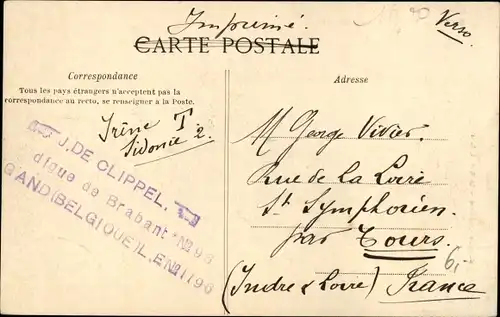 Imprimé.
Verso.
CARTE POSTALE
Correspondance
Tous les pays étrangers n'acceptent pas la
correspondance au recto, se renseigner à la Poste.
Adresse
Irène T.
Sidonie 2.
J. DE CLIPPEL.
digue de Brabant No 96
GAND (BELGIQUE) L.E No 1190
M George Vivier.
Rue de la Loire
St Symphorien.
par Tours.
(Indre & Loire) France
6,-